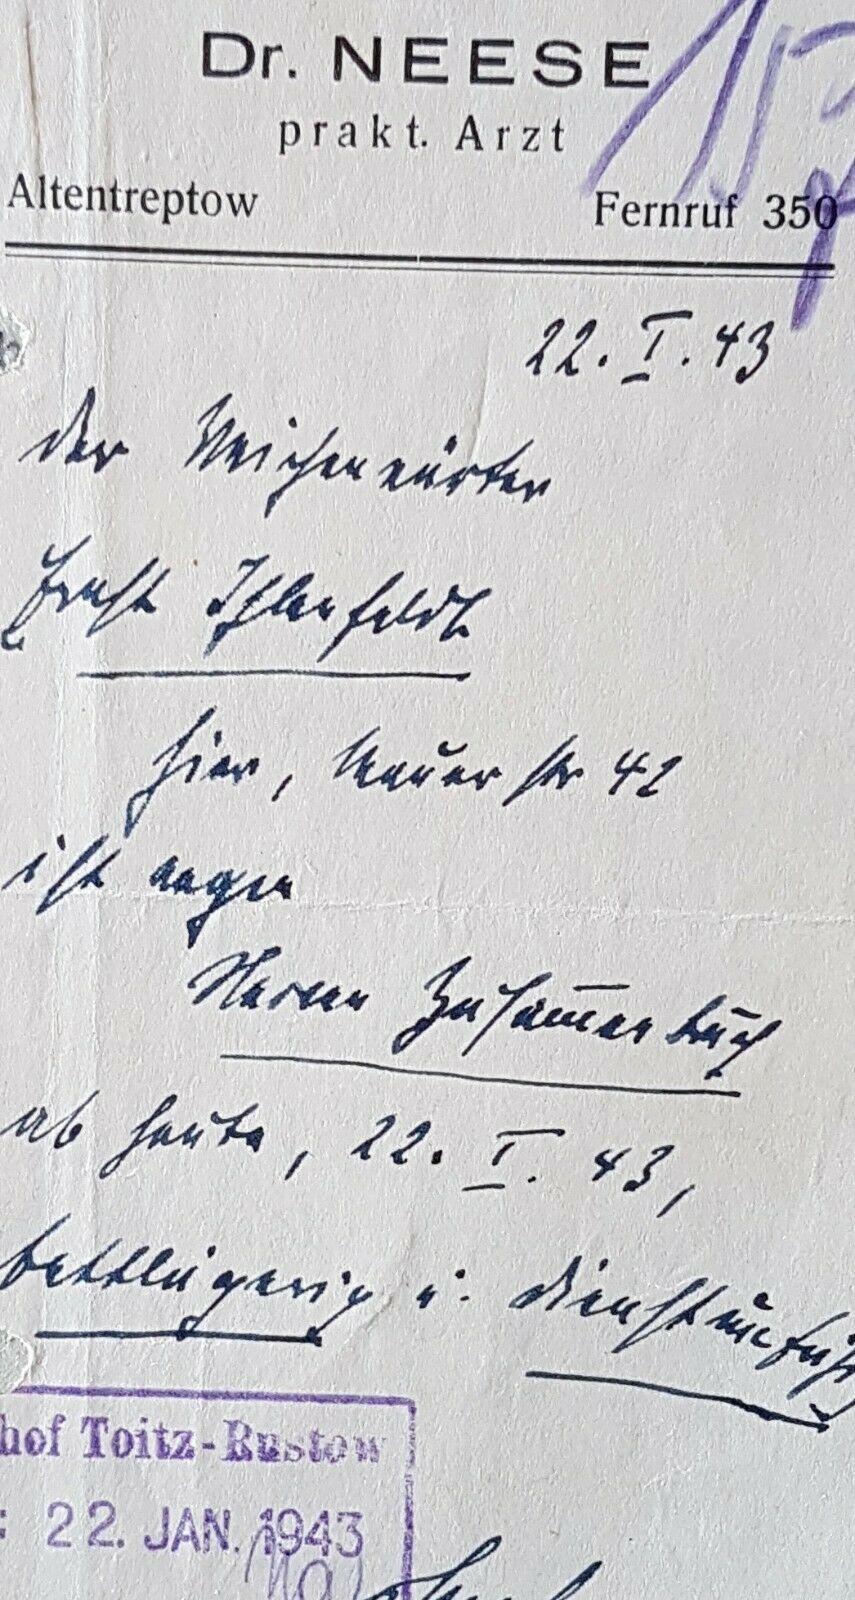 Dr. NEESE
prakt. Arzt
Altentreptow Fernruf 350
22. I. 43
Der Weichenwärter
Ernst Ihlenfeldt
hier, Mauerstr 42
ist wegen
Nerven Zusam̅enbruch
ab heute, 22. I. 43,
bettlägerig u. dienstunfäh
hof Toitz-Rustow
: 22. JAN. 1943